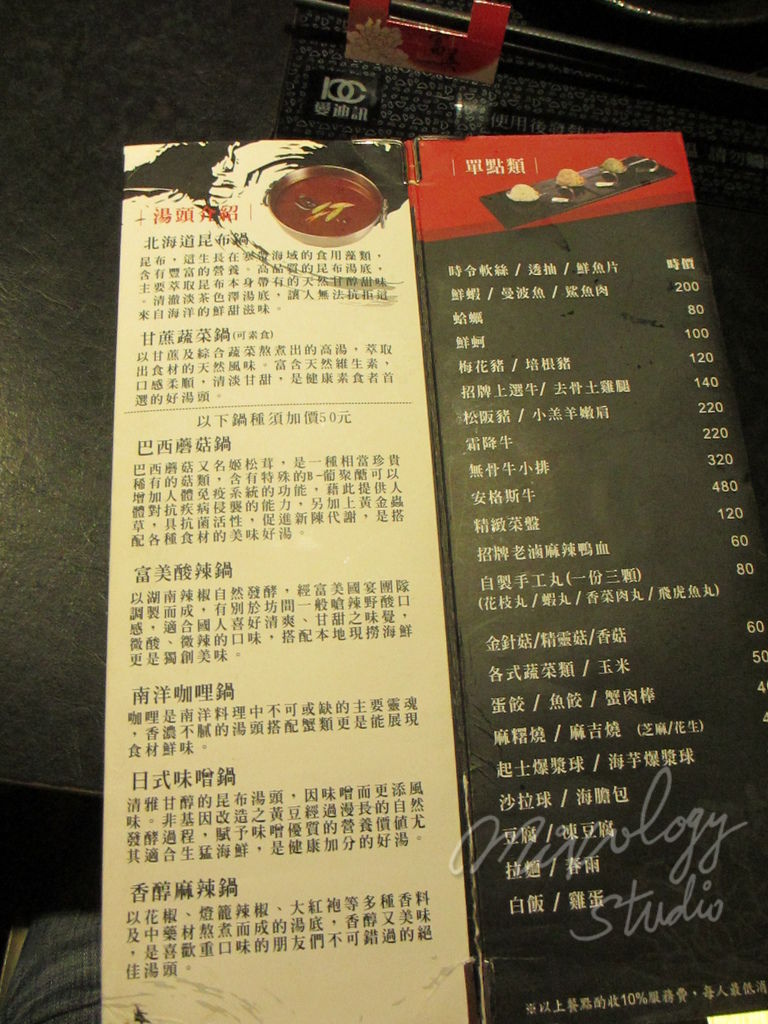 富美
曼迪訊
湯頭介紹
北海道昆布鍋
昆布,這生長在寒帶海域的食用藻類,
含有豐富的營養。高品質的昆布湯底,
主要萃取昆布本身帶有的天然甘醇甜味
。清澈淡茶色澤湯底,讓人無法抗拒這
來自海洋的鮮甜滋味。
甘蔗蔬菜鍋(可素食)
以甘蔗及綜合蔬菜熬煮出的高湯,萃取
出食材的天然風味。富含天然維生素,
口感柔順,清淡甘甜,是健康素食者首
選的好湯頭。
以下鍋種須加價50元
巴西蘑菇鍋
巴西蘑菇又名姬松茸,是一種相當珍貴
稀有的菇類,含有特殊的B-葡聚醣可以
增加人體免疫系統的功能,藉此提供人
體對抗疾病侵襲的能力,另加上黃金蟲
草,具抗菌活性,促進新陳代謝,是搭
配各種食材的美味好湯。
富美酸辣鍋
以湖南辣椒自然發酵,經富美國宴團隊
調製而成,有別於坊間一般嗆辣野酸口
感,適合國人喜好清爽、甘甜之味覺,
微酸、微辣的口味,搭配本地現撈海鮮
更是獨創美味。
南洋咖哩鍋
咖哩是南洋料理中不可或缺的主要靈魂
,香濃不膩的湯頭搭配蟹類更是能展現
食材鮮味。
日式味噌鍋
清雅甘醇的昆布湯頭,因味噌而更添風
味。非基因改造之黃豆經過漫長的自然
發酵過程,賦予味噌優質的營養價值尤
其適合生猛海鮮,是健康加分的好湯。
香醇麻辣鍋
以花椒、燈籠辣椒、大紅袍等多種香料
及中藥材熬煮而成的湯底,香醇又美味
,是喜歡重口味的朋友們不可錯過的絕
佳湯頭。
單點類
時令軟絲 / 透抽 / 鮮魚片 時價
鮮蝦 / 曼波魚 / 鯊魚肉 200
蛤蠣 80
鮮蚵 100
梅花豬 / 培根豬 120
招牌上選牛/ 去骨土雞腿 140
松阪豬 / 小羔羊嫩肩 220
霜降牛 220
無骨牛小排 320
安格斯牛 480
精緻菜盤 120
招牌老滷麻辣鴨血 60
自製手工丸(一份三顆) 80
(花枝丸 / 蝦丸 / 香菜肉丸 / 飛虎魚丸)
金針菇/精靈菇/香菇 60
各式蔬菜類 / 玉米
蛋餃 / 魚餃 / 蟹肉棒
麻糬燒 / 麻吉燒 (芝麻/花生)
起士爆漿球 / 海芋爆漿球
沙拉球 / 海膽包
豆腐 / 凍豆腐
拉麵 / 春雨
白飯 / 雞蛋
Mixology
Studio
※以上餐點酌收10%服務費,每人最低消